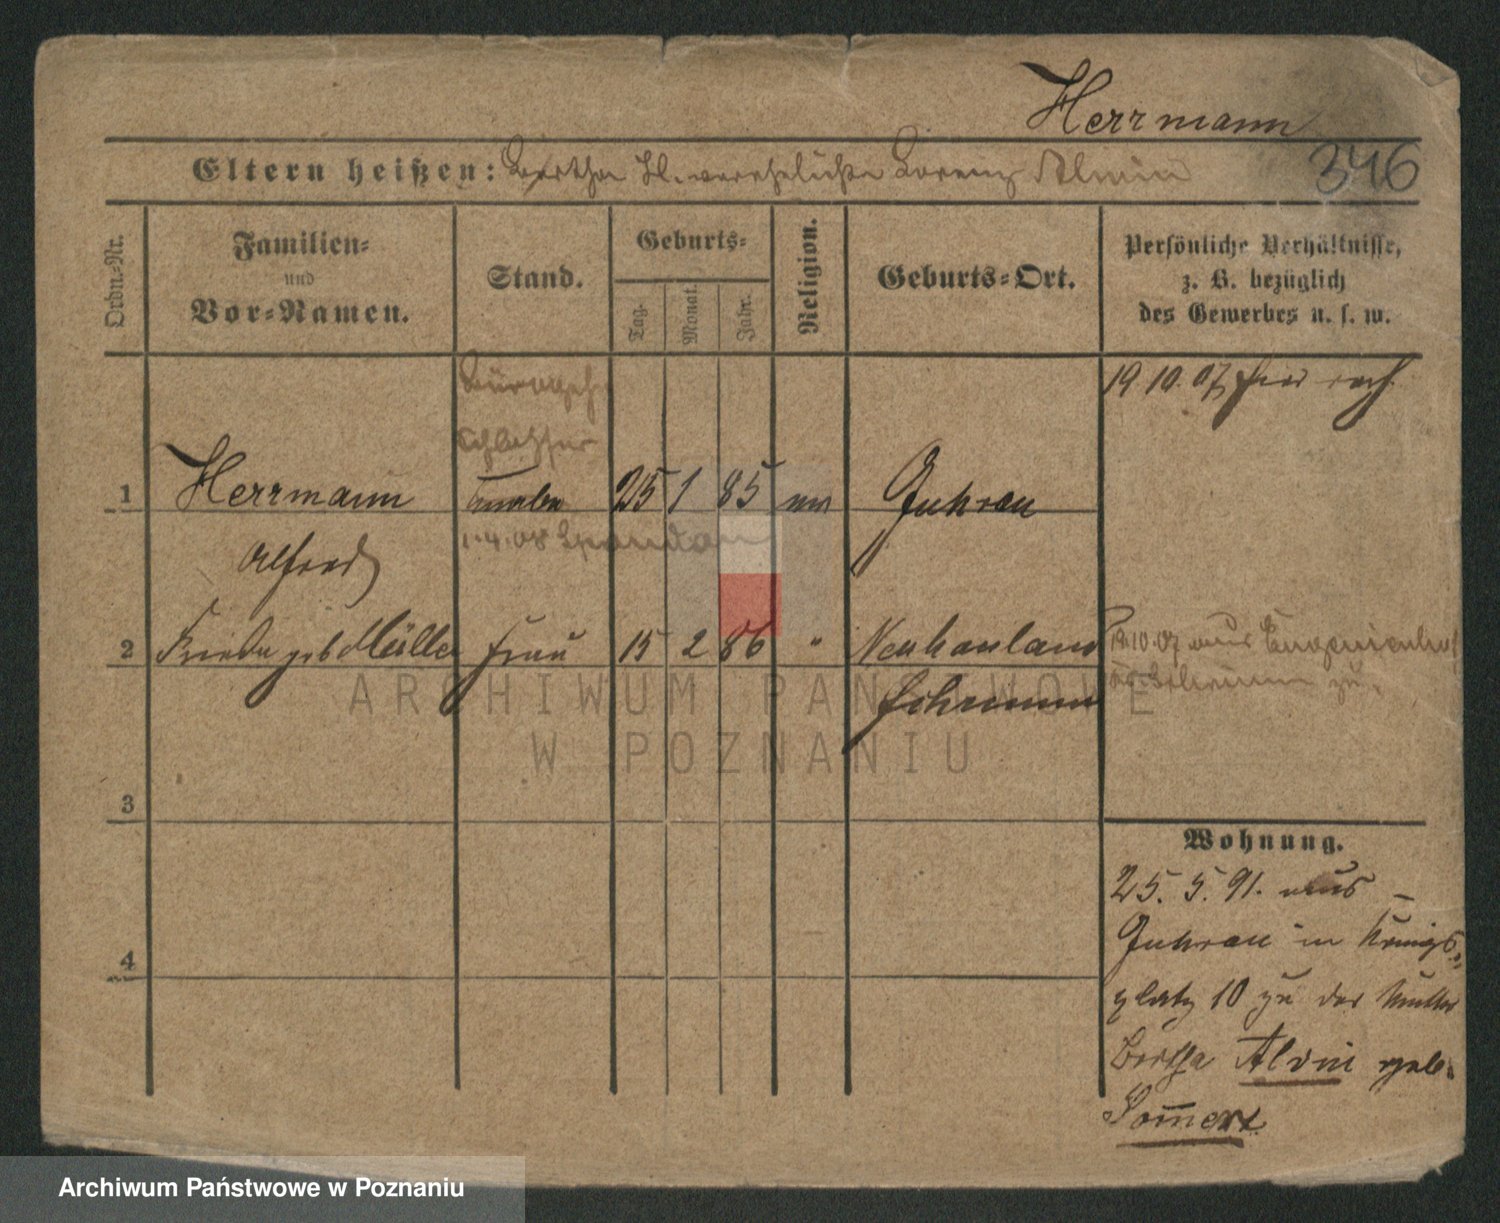 Herrmann
346
Eltern heißen: Bertha H. verehelichte Lorenz Alwin
Ordn.-Nr.
Familien-
und
Vor-Namen.
Stand.
Geburts-
Tag.
Monat.
Jahr.
Religion.
Geburts-Ort.
Persönliche Verhältnisse,
z. B. bezüglich
des Gewerbes u. s. w.
19 10. 07
Schlosser
1 Herrmann 25 1 85 Guhrau
Alfred
1.4.08 Spandau
2 Frieda geb Müller Frau 15 2 86 "
Schrimm
19.10.07 aus
zu
3
4
Wohnung.
25. 5. 91. aus
Guhrau in Königs-
platz 10 zu der Mutter
Bertha Alvin geb.
Som̄ert
ARCHIWUM PAŃSTWOWE
W POZNANIU
Archiwum Państwowe w Poznaniu